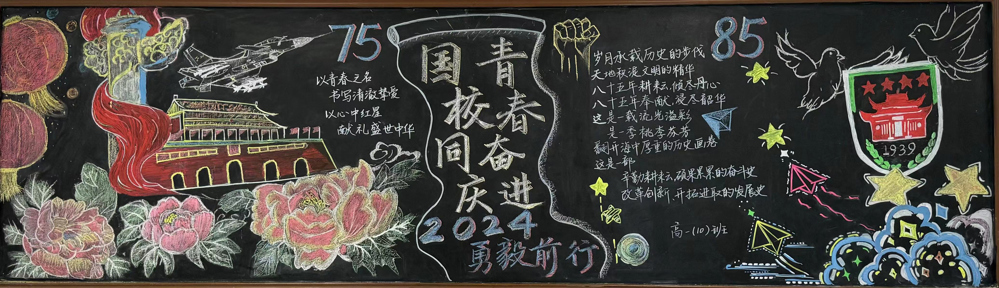 75
以青春之名
书写清澈挚爱
以心中红星
献礼盛世中华
青春奋进
国校同庆
2024
勇毅前行
85
岁月承载历史的步伐
天地积淀文明的精华
八十五年耕耘，倾尽丹心
八十五年奉献，漫尽韶华
这是一载流光溢彩
是一季桃李芬芳
翻开海中厚重的历史画卷
这是一部
辛勤耕耘，硕果累累的奋斗史
改革创新，开拓进取的发展史
高一（10）班
1939